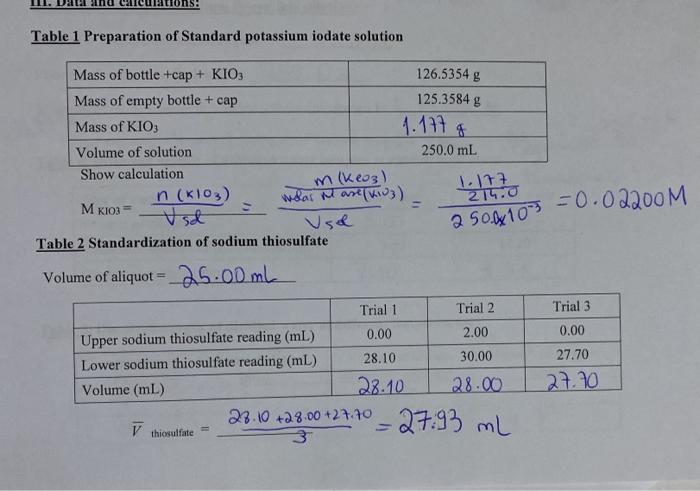 III. Data and calculations:
Table 1 Preparation of Standard potassium iodate solution
Mass of bottle +cap + KIO3 126.5354 g
Mass of empty bottle + cap 125.3584 g
Mass of KIO3 1.177 g
Volume of solution 250.0 mL
Show calculation
M KIO3 = n (KIO3) / Vsol = m (KIO3) / molar Mass (KIO3) / Vsol = 1.177 / 214.0 / 250.0x10-3 = 0.02200M
Table 2 Standardization of sodium thiosulfate
Volume of aliquot = 25.00 mL
Trial 1 Trial 2 Trial 3
Upper sodium thiosulfate reading (mL) 0.00 2.00 0.00
Lower sodium thiosulfate reading (mL) 28.10 30.00 27.70
Volume (mL) 28.10 28.00 27.70
V̅ thiosulfate = 28.10 +28.00 +27.70 / 3 = 27.93 mL